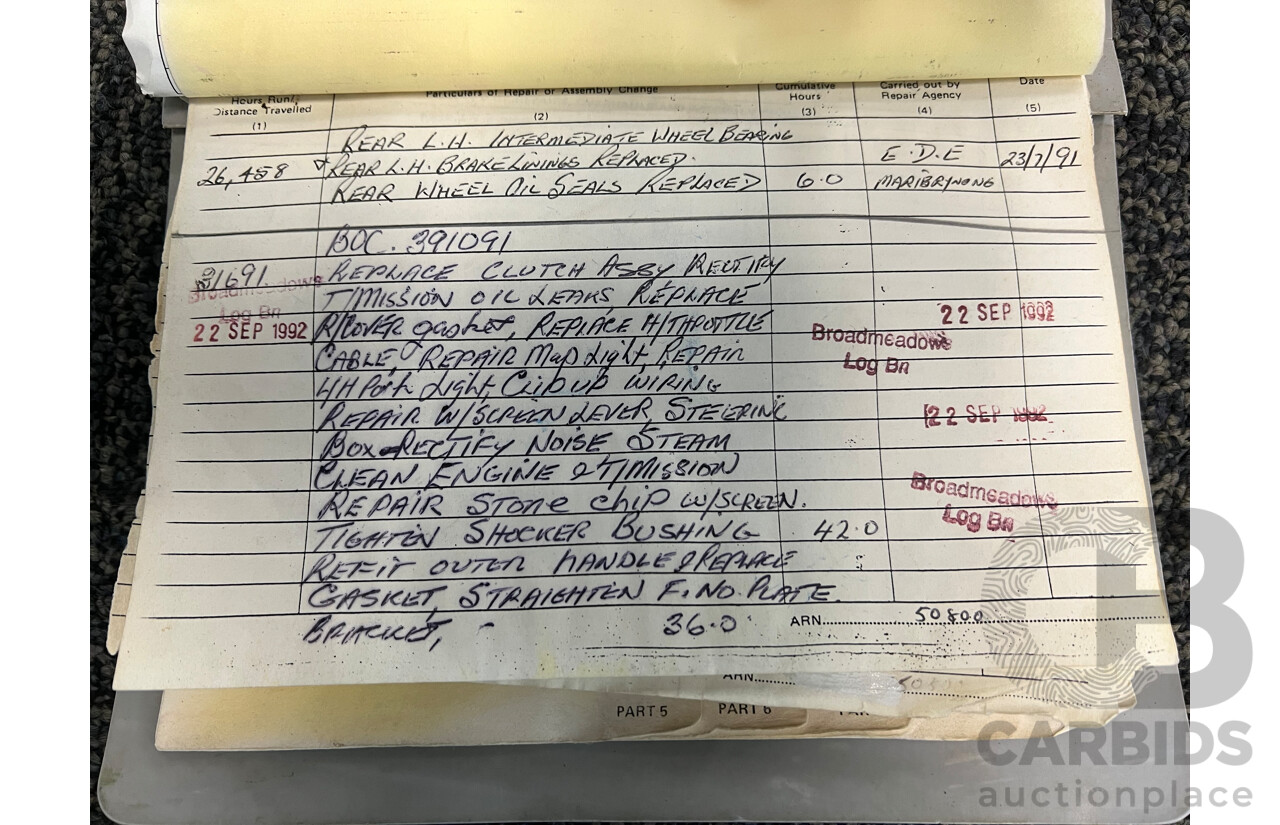 Hours Run/ Distance Travelled (1)
Particulars of Repair or Assembly Change (2)
Cumulative Hours (3)
Carried out by Repair Agency (4)
Date (5)
REAR L.H. INTERMEDIATE WHEEL BEARING
26,458 REAR L.H. BRAKE LININGS REPLACED. E.D.E 23/7/91
REAR WHEEL OIL SEALS REPLACED 6.0 MARIBRYNONG
BOC. 391091
31691 REPLACE CLUTCH ASSY RECTIFY
Broadmeadows
T/MISSION OIL LEAKS REPLACE
Log Bn
22 SEP 1992
22 SEP 1992 R/COVER gasket, REPLACE H/THROTTLE
Broadmeadows
CABLE, REPAIR Map Light, REPAIR
Log Bn
Park Light, Clip up WIRING
REPAIR W/SCREEN LEVER, STEERING
22 SEP 1992
BOX RECTIFY NOISE STEAM
CLEAN ENGINE & T/MISSION
Broadmeadows
REPAIR Stone chip W/SCREEN.
Log Bn
TIGHTEN SHOCKER BUSHING 42.0
REFIT OUTER HANDLE & REPLACE
GASKET, STRAIGHTEN F. NO. PLATE.
BRACKET, - 36.0 ARN 50800
ARN
PART 5 PART 6
CARBIDS
auctionplace